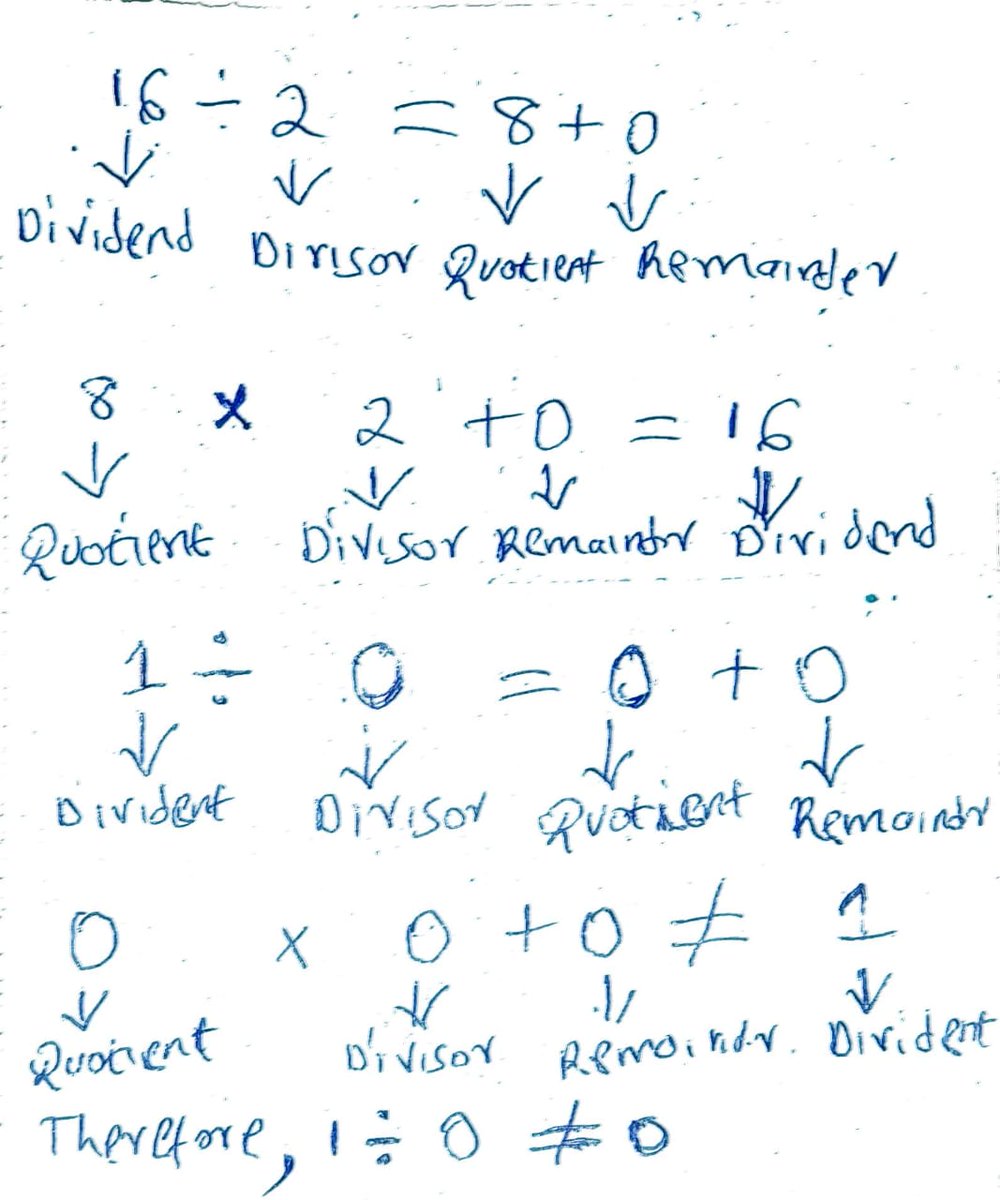 16 ÷ 2 = 8 + 0
Dividend Divisor Quotient Remainder
8 x 2 + 0 = 16
Quotient Divisor Remaindr Dividend
1 ÷ 0 = 0 + 0
Divident Divisor Quotient Remaindr
0 x 0 + 0 ≠ 1
Quotient Divisor Remaindr. Divident
Therefore, 1 ÷ 0 ≠ 0